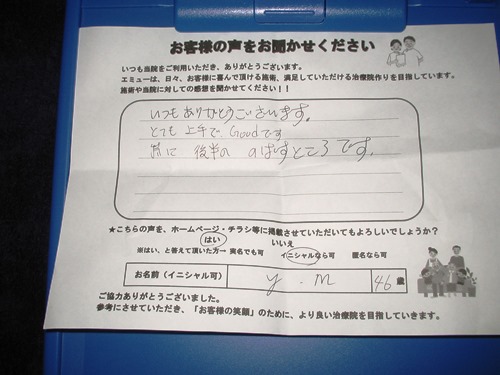 お客様の声をお聞かせください
いつも当院をご利用いただき、ありがとうございます。
エミューは、日々、お客様に喜んで頂ける施術、満足していただける治療院作りを目指しています。
施術や当院に対しての感想を聞かせてください！！
いつもありがとうございます。
とても上手で、Goodです
特に 後半の のばすところです。
★こちらの声を、ホームページ・チラシ等に掲載させていただいてもよろしいでしょうか？
はい いいえ
※はい、と答えて頂いた方→ 実名でも可 イニシャルなら可 匿名なら可
お名前（イニシャル可） y.m 46 歳
ご協力ありがとうございました。
参考にさせていただき、「お客様の笑顔」のために、より良い治療院を目指していきます。